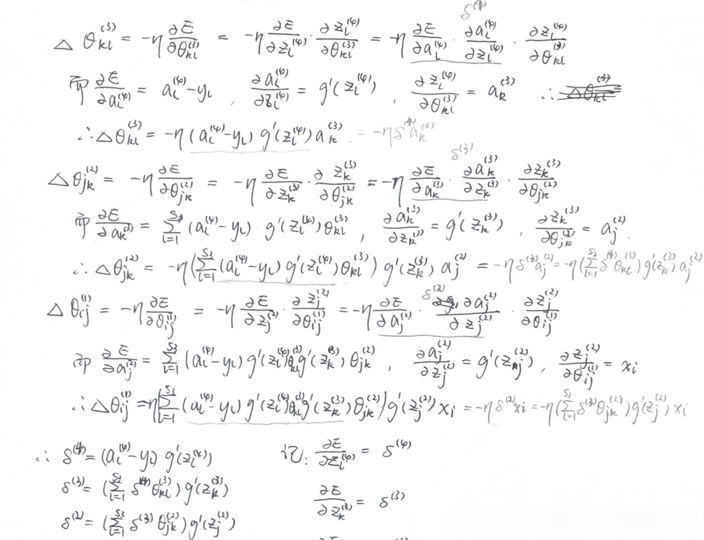 δ^{(4)}
△θ_{kl}^{(3)} = -η ∂E/∂θ_{kl}^{(3)} = -η ∂E/∂z_l^{(4)} · ∂z_l^{(4)}/∂θ_{kl}^{(3)} = -η ∂E/∂a_l^{(4)} · ∂a_l^{(4)}/∂z_l^{(4)} · ∂z_l^{(4)}/∂θ_{kl}^{(3)}
而 ∂E/∂a_l^{(4)} = a_l^{(4)}-y_l , ∂a_l^{(4)}/∂z_l^{(4)} = g'(z_l^{(4)}) , ∂z_l^{(4)}/∂θ_{kl}^{(3)} = a_k^{(3)} ∴
∴△θ_{kl}^{(3)} = -η (a_l^{(4)}-y_l) g'(z_l^{(4)}) a_k^{(3)} = -ηδ^{(4)}a_k^{(3)}
δ^{(3)}
△θ_{jk}^{(2)} = -η ∂E/∂θ_{jk}^{(2)} = -η ∂E/∂z_k^{(3)} · ∂z_k^{(3)}/∂θ_{jk}^{(2)} = -η ∂E/∂a_k^{(3)} · ∂a_k^{(3)}/∂z_k^{(3)} · ∂z_k^{(3)}/∂θ_{jk}^{(2)}
而 ∂E/∂a_k^{(3)} = Σ (a_l^{(4)}-y_l) g'(z_l^{(4)}) θ_{kl}^{(3)} , ∂a_k^{(3)}/∂z_k^{(3)} = g'(z_k^{(3)}) , ∂z_k^{(3)}/∂θ_{jk}^{(2)} = a_j^{(2)}.
∴△θ_{jk}^{(2)} = -η(Σ (a_l^{(4)}-y_l) g'(z_l^{(4)}) θ_{kl}^{(3)}) g'(z_k^{(3)}) a_j^{(2)} = -ηδ^{(3)}a_j^{(2)} = -η(Σ δ^{(4)}θ_{kl}^{(3)}) g'(z_k^{(3)}) a_j^{(2)}
δ^{(2)}
△θ_{ij}^{(1)} = -η ∂E/∂θ_{ij}^{(1)} = -η ∂E/∂z_j^{(2)} · ∂z_j^{(2)}/∂θ_{ij}^{(1)} = -η ∂E/∂a_j^{(2)} · ∂a_j^{(2)}/∂z_j^{(2)} · ∂z_j^{(2)}/∂θ_{ij}^{(1)}
而 ∂E/∂a_j^{(2)} = Σ (a_l^{(4)}-y_l) g'(z_l^{(4)}) θ_{kl}^{(3)} g'(z_k^{(3)}) θ_{jk}^{(2)} , ∂a_j^{(2)}/∂z_j^{(2)} = g'(z_j^{(2)}) , ∂z_j^{(2)}/∂θ_{ij}^{(1)} = x_i
∴△θ_{ij}^{(1)} = -η(Σ (a_l^{(4)}-y_l) g'(z_l^{(4)}) θ_{kl}^{(3)} g'(z_k^{(3)}) θ_{jk}^{(2)}) g'(z_j^{(2)}) x_i = -ηδ^{(2)}x_i = -η(Σ δ^{(3)}θ_{jk}^{(2)}) g'(z_j^{(2)}) x_i
∴ δ^{(4)} = (a_l^{(4)}-y_l) g'(z_l^{(4)}) 记: ∂E/∂z_l^{(4)} = δ^{(4)}
δ^{(3)} = (Σ δ^{(4)} θ_{kl}^{(3)}) g'(z_k^{(3)}) ∂E/∂z_k^{(3)} = δ^{(3)}
δ^{(2)} = (Σ δ^{(3)} θ_{jk}^{(2)}) g'(z_j^{(2)})